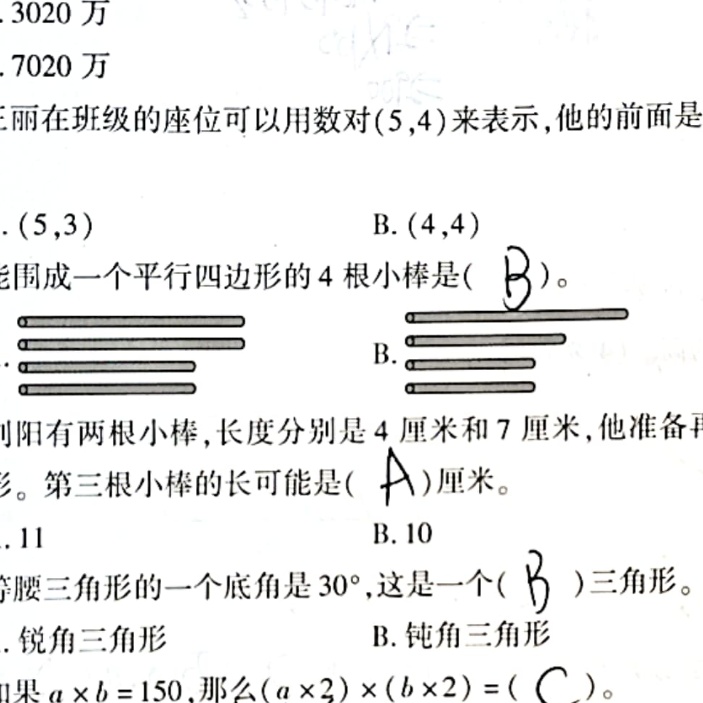 . 3020 万
. 7020 万
王丽在班级的座位可以用数对(5,4)来表示,他的前面是
. (5,3) B. (4,4)
能围成一个平行四边形的 4 根小棒是( B )。
. B.
刘阳有两根小棒,长度分别是 4 厘米和 7 厘米,他准备再
形。第三根小棒的长可能是( A )厘米。
. 11 B. 10
等腰三角形的一个底角是 30°,这是一个( B )三角形。
. 锐角三角形 B. 钝角三角形
如果 a×b=150,那么(a×2)×(b×2)=( C )。